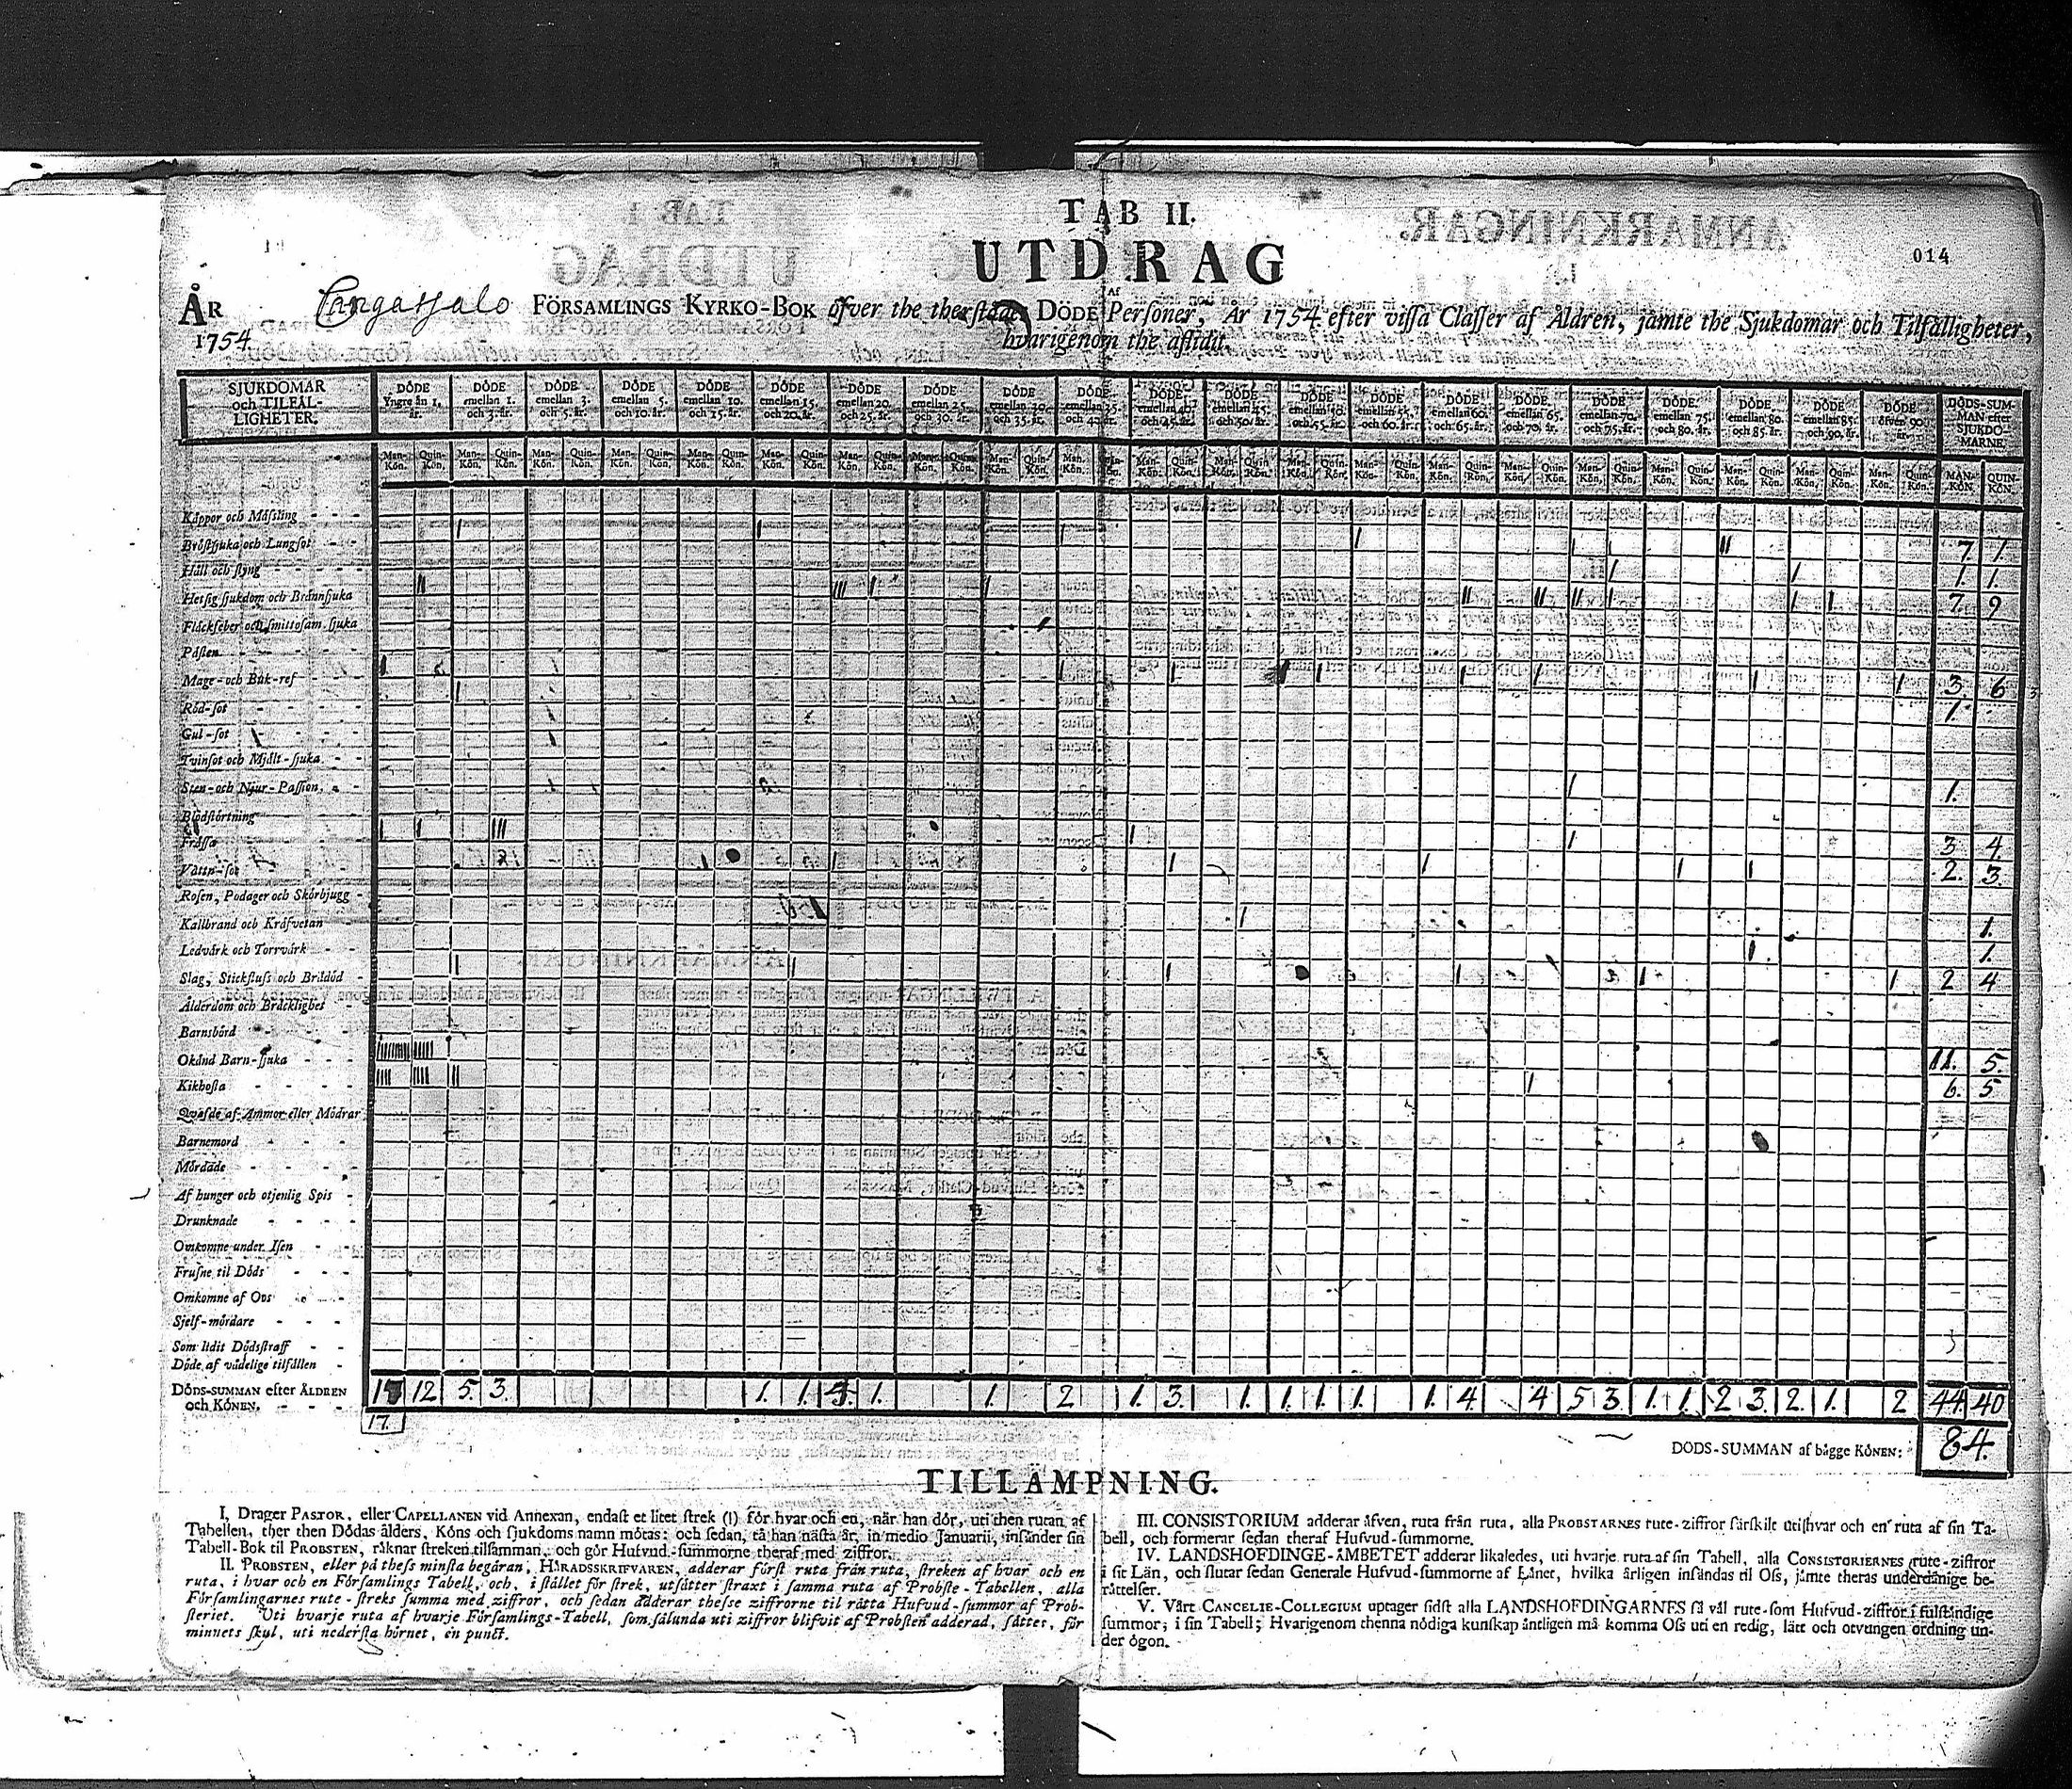 TAB II.
UTDRAG
014
ÅR
1754
Cangasjalo FÖRSAMLINGS KYRKO-BOK öfver the therstädes DÖDE Personer, År 1754 efter vissa Classer af Åldren, jämte the Sjukdomar och Tilfälligheter,
hvarigenom the aflidit.
SJUKDOMAR och TILFÄLLIGHETER.
DÖDE Yngre än 1. år.
DÖDE emellan 1. och 3. år.
DÖDE emellan 3. och 5. år.
DÖDE emellan 5. och 10. år.
DÖDE emellan 10. och 15. år.
DÖDE emellan 15. och 20. år.
DÖDE emellan 20. och 25. år.
DÖDE emellan 25. och 30. år.
DÖDE emellan 30. och 35. år.
DÖDE emellan 35. och 40. år.
DÖDE emellan 40. och 45. år.
DÖDE emellan 45. och 50. år.
DÖDE emellan 50. och 55. år.
DÖDE emellan 55. och 60. år.
DÖDE emellan 60. och 65. år.
DÖDE emellan 65. och 70. år.
DÖDE emellan 70. och 75. år.
DÖDE emellan 75. och 80. år.
DÖDE emellan 80. och 85. år.
DÖDE emellan 85. och 90. år.
DÖDE öfver 90. år.
DÖDS-SUMMAN efter SJUKDOMARNE.
MAN-KÖN. QUIN-KÖN.
Kåppor och Mässling
Bröstsjuka och Lungsot 7. 1.
Håll och styng 1. 1.
Hetsig sjukdom och Brännsjuka 7. 9
Fläckfeber och smittosam sjuka
Pästen
Mage- och Buk-ref 3. 6
Röd-sot 1.
Gul-sot
Tvinsot och Mjält-sjuka
Sten- och Njur-Passion 1.
Blodstörtning
Frässa 3 4.
Vattu-sot 2. 3.
Rosen, Podager och Skörbjugg
Kallbrand och Kräfvetan 1.
Ledvärk och Torrvärk 1.
Slag, Stickfluss och Brådöd 2 4
Ålderdom och Bräcklighet
Barnsbörd
Okänd Barn-sjuka 11. 5.
Kikhosta 6. 5
Qväfde af Ammor eller Mödrar
Barnemord
Mördade
Af hunger och otjenlig Spis
Drunknade
Omkomne under Isen
Frusne til Döds
Omkomne af Oos
Sjelf-mördare
Som lidit Dödsstraff
Döde af vådelige tilfällen
DÖDS-SUMMAN efter ÅLDREN och KÖNEN. 17 12 5. 3. 1. 1. 3. 1. 1. 2 1. 3. 1. 1. 1. 1. 1. 4. 4 5 3. 1. 1. 2 3. 2. 1. 2 44. 40
17.
DÖDS-SUMMAN af bägge KÖNEN: 84.
TILLÄMPNING.
I, Drager PASTOR, eller CAPELLANEN vid Annexan, endast et litet strek (I) för hvar och en, när han dör, uti then rutan af
Tabellen, ther then Dödas ålders, Köns och sjukdoms namn mötas: och sedan, tå han nästa år, in medio Januarii, insänder sin
Tabell-Bok til PROBSTEN, räknar streken tilsamman, och gör Hufvud-summorne theraf med ziffror.
II. PROBSTEN, eller på thess minsta begäran, HÄRADSSKRIFVAREN, adderar först ruta från ruta, streken af hvar och en
ruta, i hvar och en Församlings Tabell, och, i stället för strek, utsätter straxt i samma ruta af Probste-Tabellen, alla
Församlingarnes rute-streks summa med ziffror, och sedan adderar thesse ziffrorne til rätta Hufvud-summor af Prob-
steriet. Uti hvarje ruta af hvarje Församlings-Tabell, som sålunda uti ziffror blifvit af Probsten adderad, sättes, för
minnets skul, uti nedersta hörnet, en punct.
III. CONSISTORIUM adderar äfven, ruta från ruta, alla PROBSTARNES rute-ziffror särskilt uti hvar och en ruta af sin Ta-
bell, och formerar sedan theraf Hufvud-summorne.
IV. LANDSHOFDINGE-ÄMBETET adderar likaledes, uti hvarje ruta af sin Tabell, alla CONSISTORIERNES rute-ziffror
i sit Län, och slutar sedan Generale Hufvud-summorne af Länet, hvilka årligen insändas til Oss, jämte theras underdånige be-
rättelser.
V. Vårt CANCELIE-COLLEGIUM uptager sidst alla LANDSHOFDINGARNES så väl rute- som Hufvud-ziffror i fulständige
summor; i sin Tabell; Hvarigenom thenna nödiga kunskap äntligen må komma Oss uti en redig, lätt och otvungen ordning un-
der ögon.